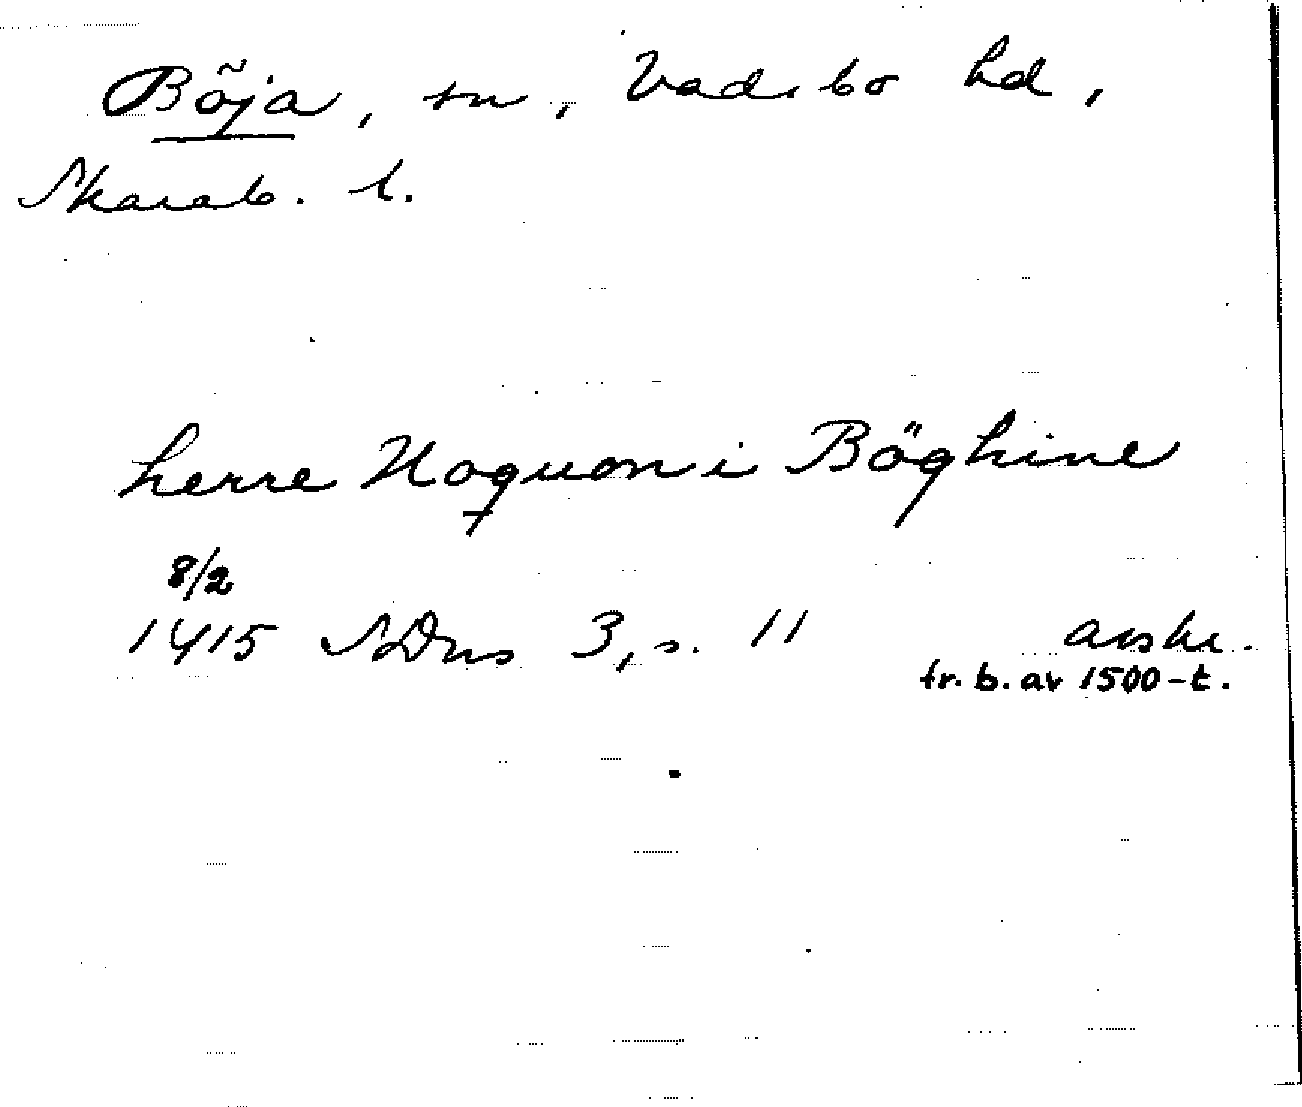 Böja, sn, Vadsbo hd,
Skarab. l.
herre Haquon i Böghine
8/2
1415 SDns 3, s. 11 avskr.
fr. b. av 1500-t.